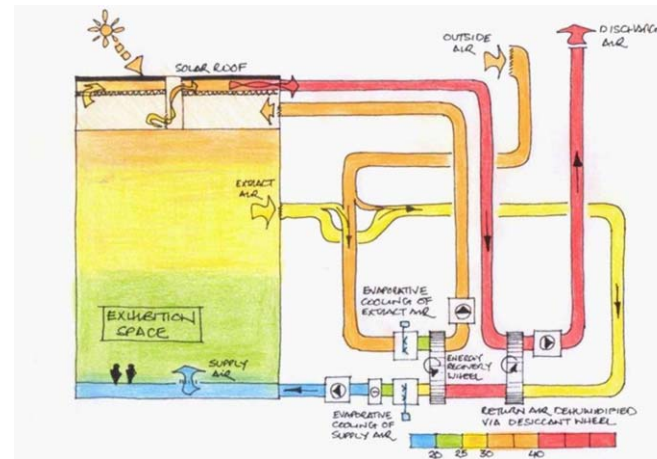 SOLAR ROOF
OUTSIDE
AIR
DISCHARGE
AIR
EXTRACT
AIR
EVAPORATIVE
COOLING OF
EXTRACT AIR
EXHIBITION
SPACE
SUPPLY
AIR
ENERGY
RECOVERY
WHEEL
EVAPORATIVE
COOLING OF
SUPPLY AIR
RETURN AIR DEHUMIDIFIED
VIA DESICCANT WHEEL
20 25 30 40